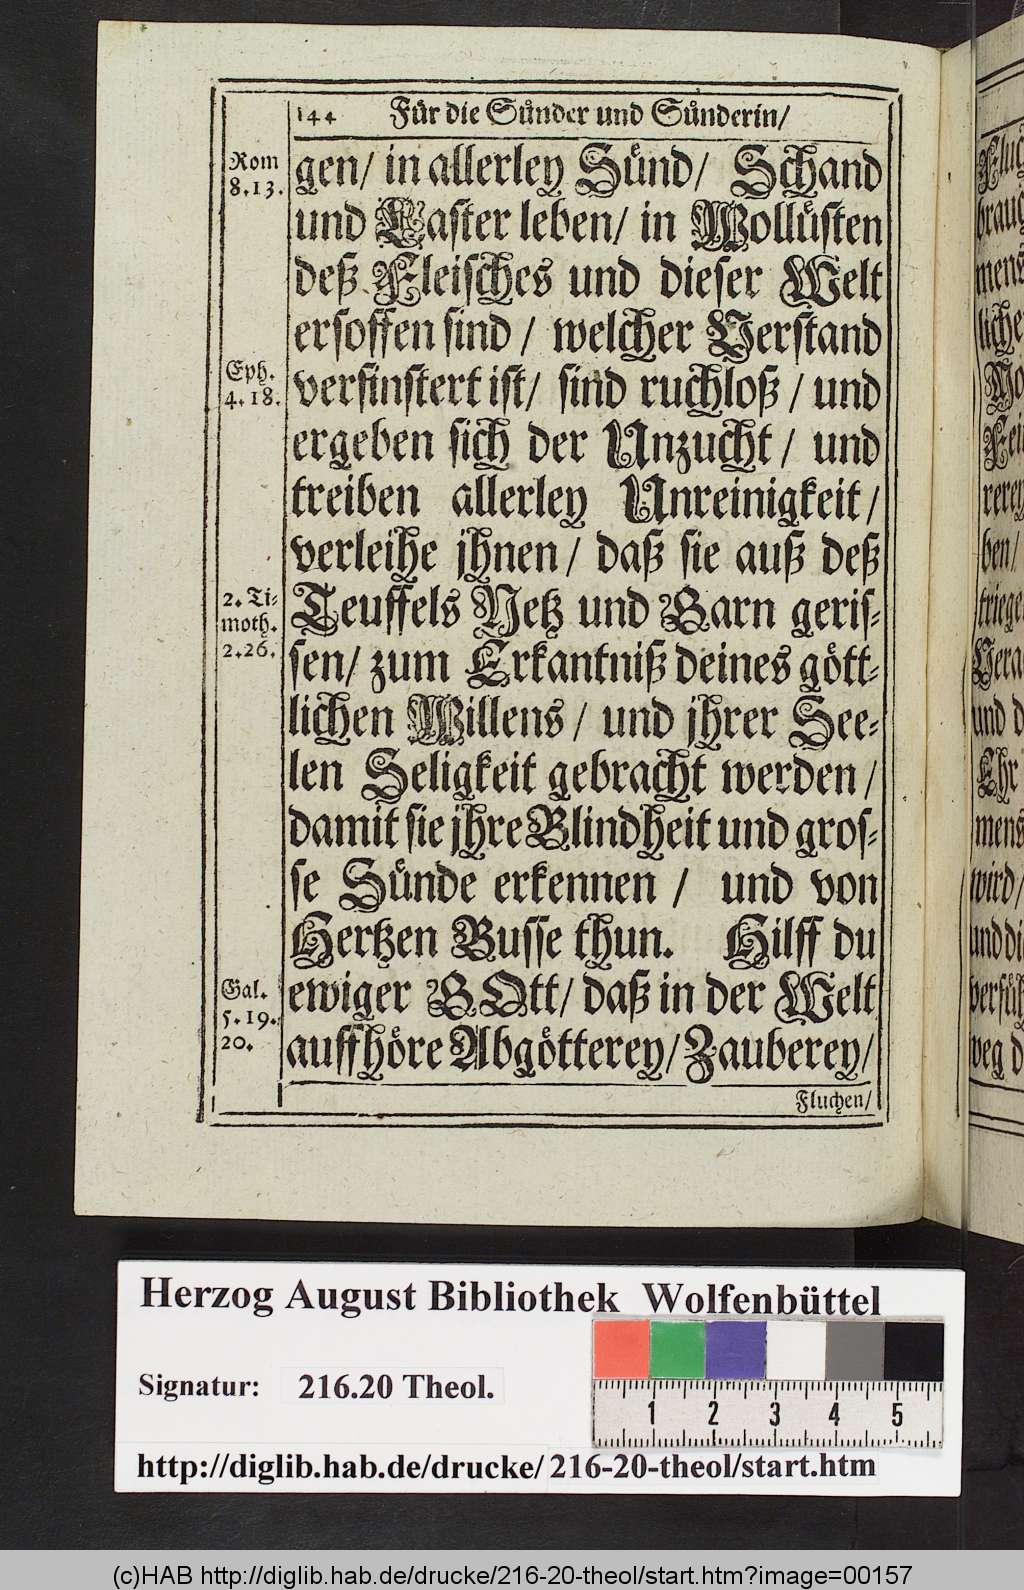 144 Für die Sünder und Sünderin/
Rom
8.13.
gen/ in allerley Sünd/ Schand
und Laster leben/ in Wollüsten
deß Fleisches und dieser Welt
ersoffen sind/ welcher Verstand
Eph.
4.18.
versinstert ist/ sind ruchloß/ und
ergeben sich der Unzucht/ und
treiben allerley Unreinigkeit/
verleihe jhnen/ daß sie auß deß
2. Ti-
moth.
2.26.
Teuffels Netz und Garn geris-
sen/ zum Erkantniß deines gött-
lichen Willens/ und jhrer See-
len Seligkeit gebracht werden/
damit sie jhre Blindheit und gros-
se Sünde erkennen/ und von
Hertzen Busse thun. Hilff du
Gal.
5.19.
20.
ewiger GOtt/ daß in der Welt
auffhöre Abgötterey/ Zauberey/
Fluchen/
Herzog August Bibliothek Wolfenbüttel
Signatur: 216.20 Theol.
1 2 3 4 5
http://diglib.hab.de/drucke/216-20-theol/start.htm
(c)HAB http://diglib.hab.de/drucke/216-20-theol/start.htm?image=00157